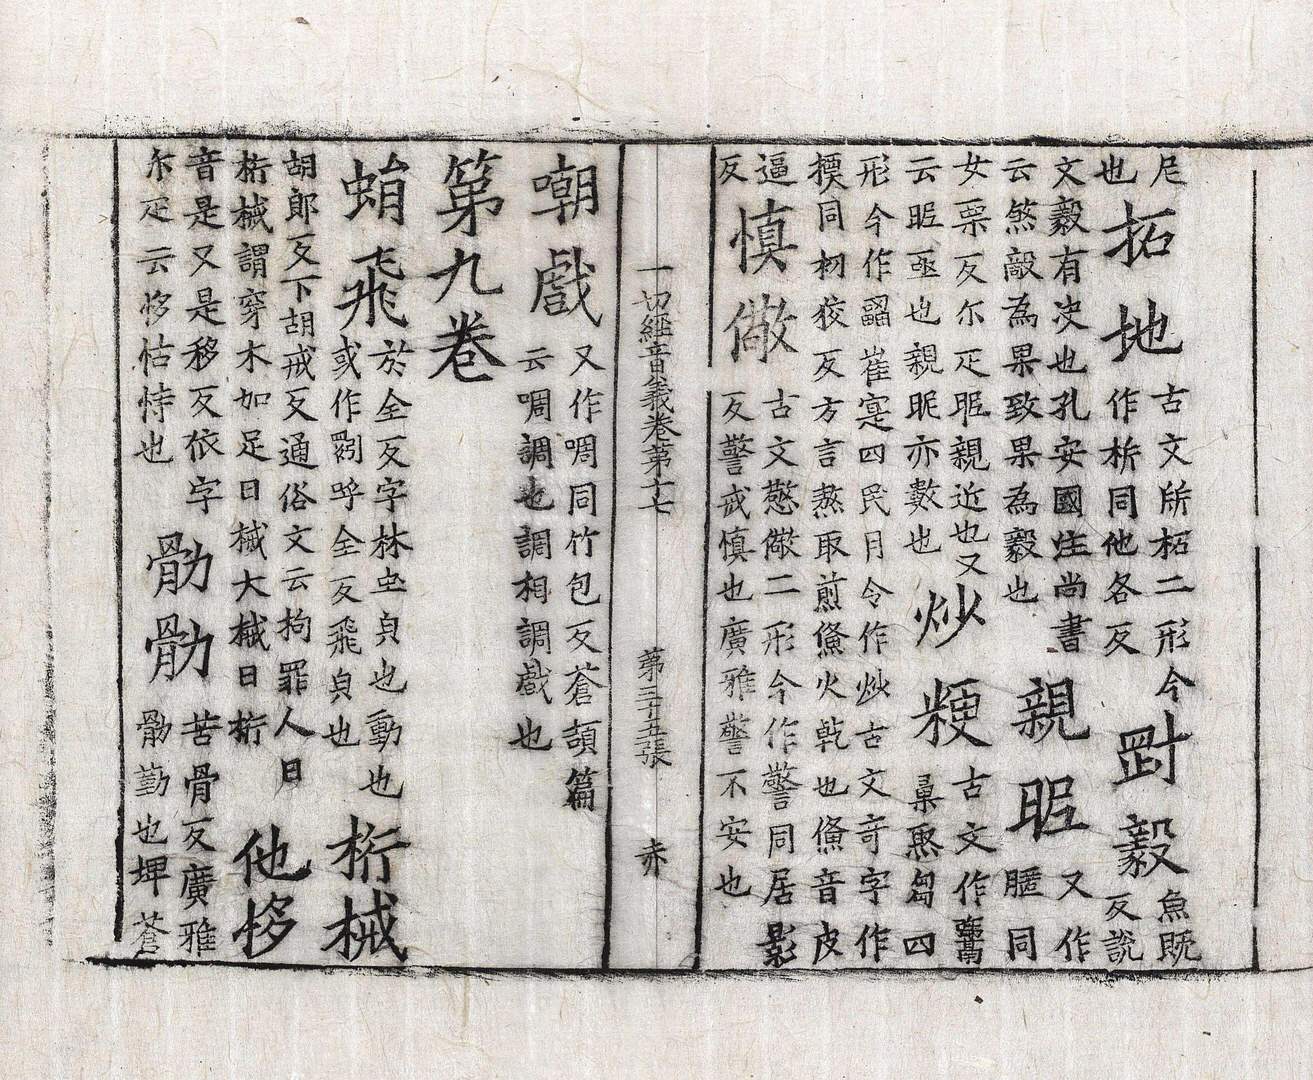 尼
也
拓地
古文㪿拓二形今
作㭊同他各反
毅
魚旣
反說
文毅有决也孔安國注尚書
云煞敵為果致果為毅也
親昵
又作
同
女栗反尒疋昵親近也又
云昵亟也親昵亦數也
炒粳
古文作
芻四
形今作崔寔四民月令作炒古文奇字作
同初狡反方言熬煎火乾也音皮
逼
反
慎儆
古文憼儆二形今作警同居影
反警戒慎也廣雅警不安也
一切經音義卷第十七 第三十五張 赤
嘲戲
又作啁同竹包反蒼頡篇
云啁調也調相調戲也
第九卷
蜎飛
於全反字林虫皃也動也
或作𧕎呼全反飛皃也
桁械
胡郎反下胡戒反通俗文云拘罪人曰
桁械謂穿木加足曰械大械曰桁
他栘
音是又是移反依字
尒疋云恀怙恃也
勩勩
苦骨反廣雅
勤也埤蒼